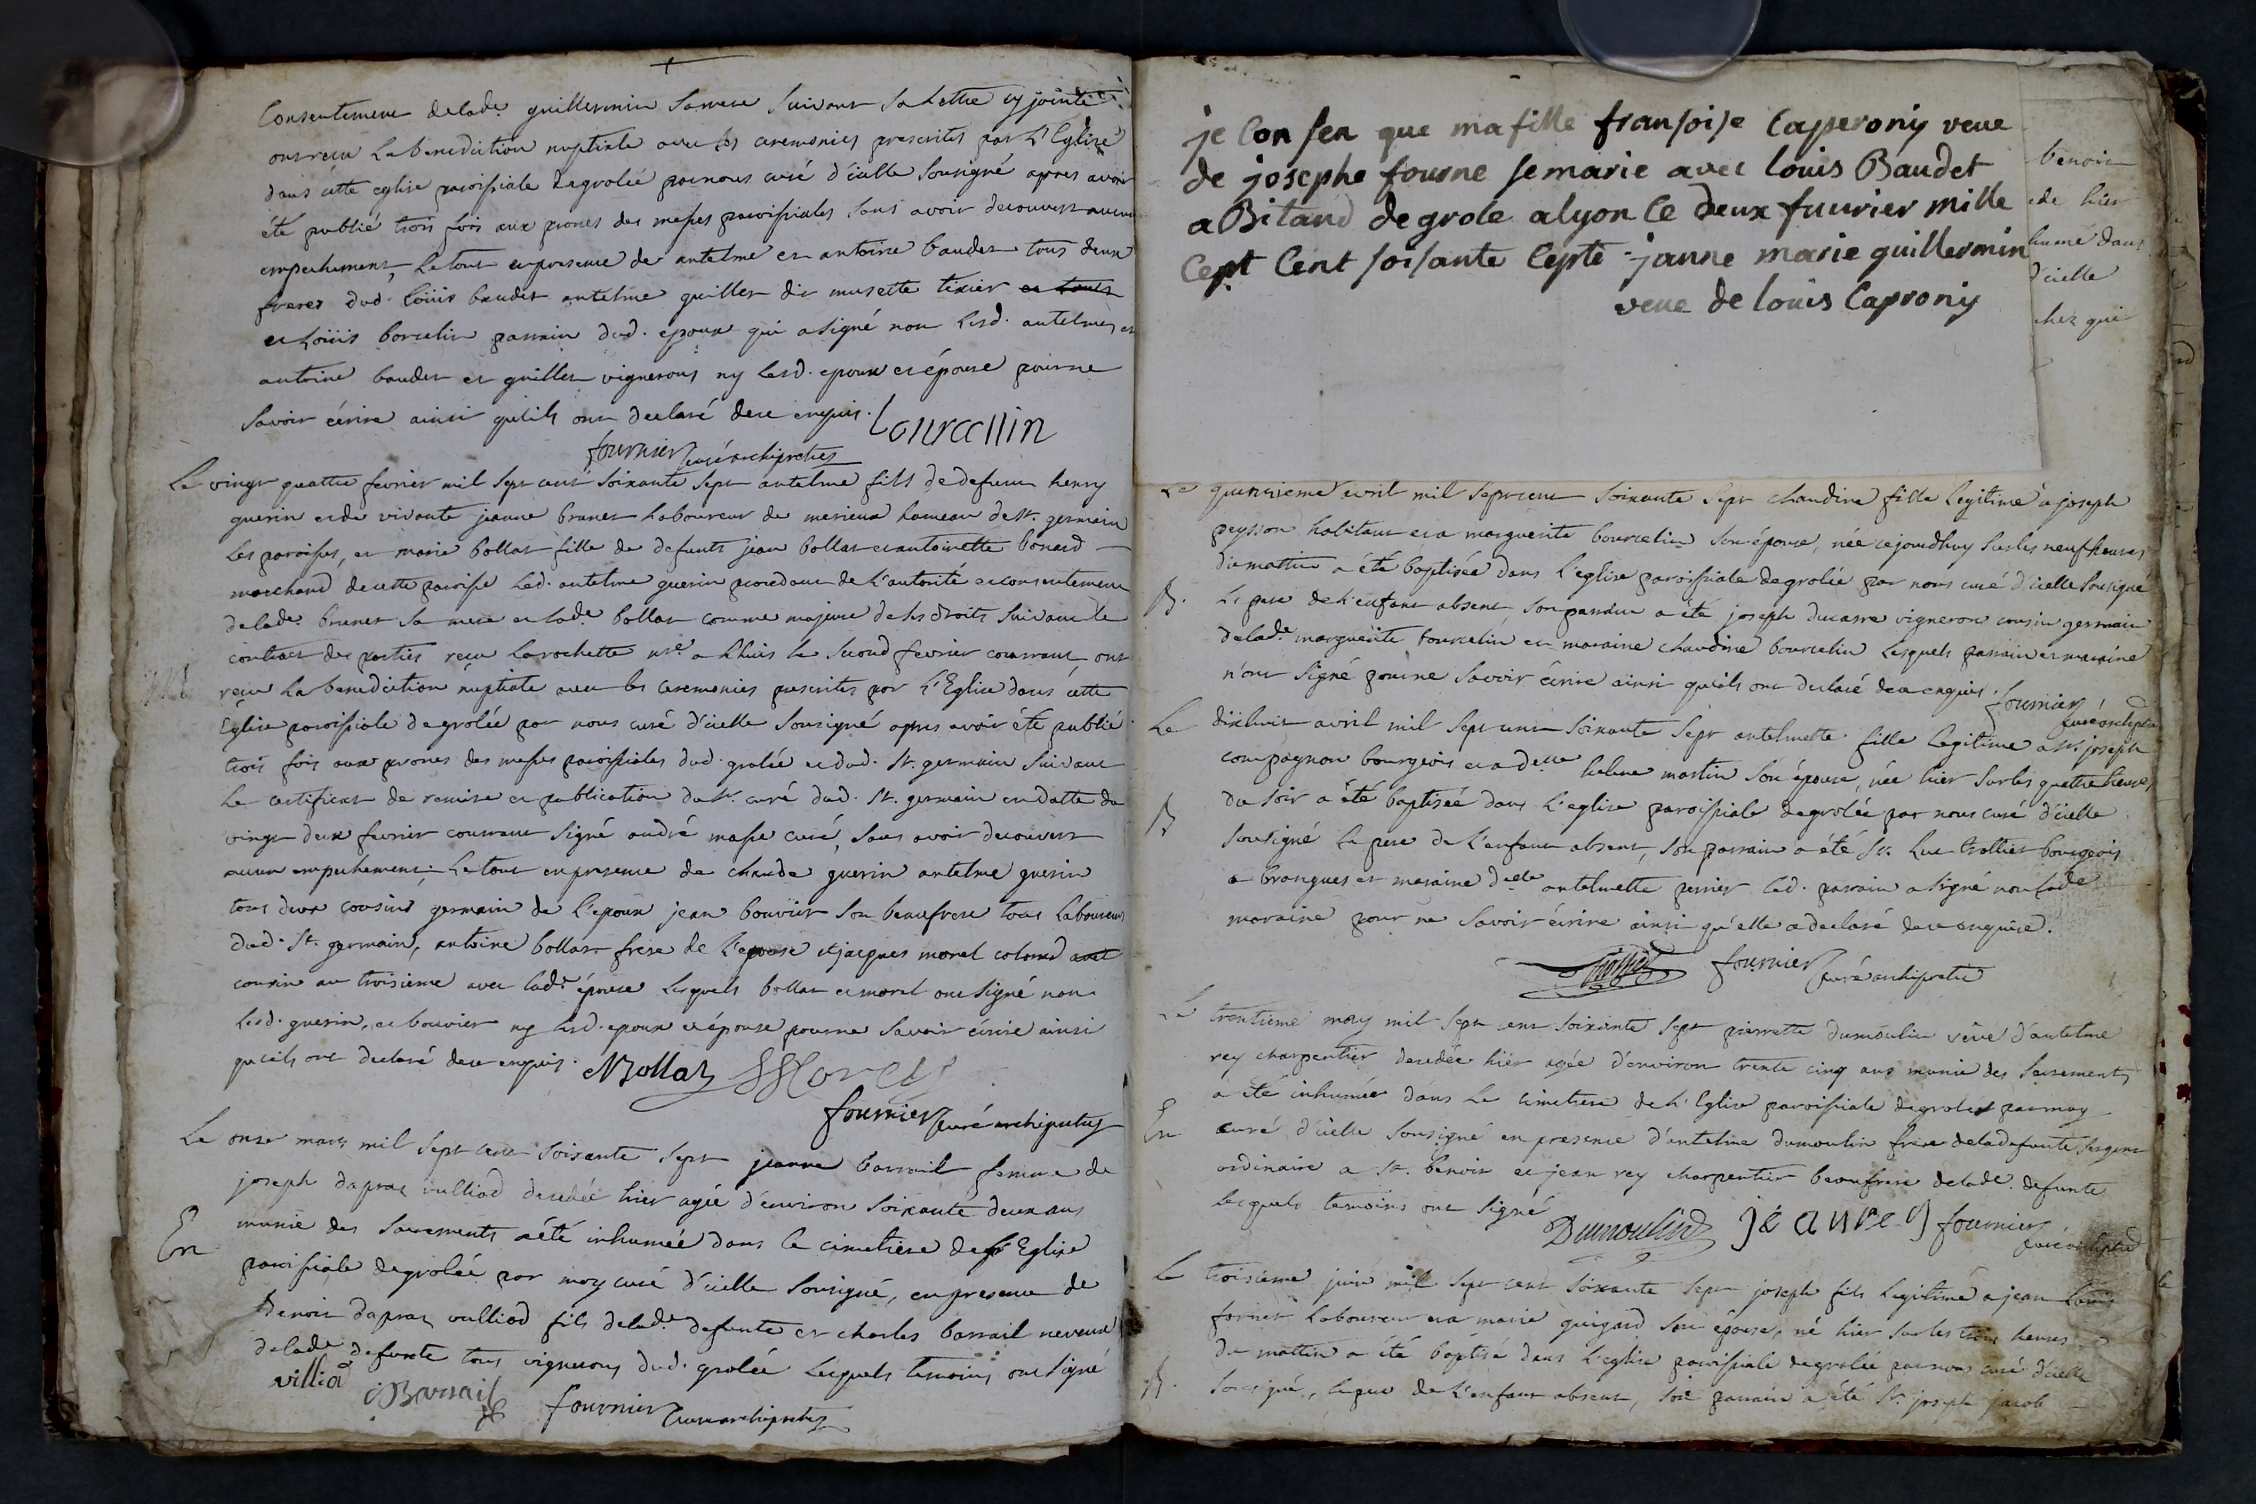 Consentement de lad.e guillermin sa mere suivant sa lettre cy jointe
ont recu la benediction nuptiale avec les ceremonies prescrites par l'Eglise
dans cette eglise paroissiale de grolée par nous curé d'icelle soussigné apres avoir
été publié trois fois aux prones des messes paroissiales sans avoir decouvert aucun
empechement, le tout en presence de antelme et antoine baudet tous deux
freres dud. Loüis baudet antelme guillet dit musette tixier
et Loüis borcelin parrain dud. epoux qui a signé non lesd. antelme et
antoine baudet et guillet vignerons ny lesd. epoux et épouse pour ne
savoir écrire ainsi qu'ils ont declaré de ce enquis. bourcellin
fournier curé archipretre
Le vingt quattre fevrier mil sept cent soixante sept antelme fils de defunt henry
guerin et de vivante jeanne brunet laboureur de merieux hameau de st. germain
les paroisses, et marie bollat fille de defunts jean bollat et antoinette bonard
marchand de cette paroisse led. antelme guerin procedant de l'autorité et consentement
de lad.e brunet sa mere et lad.e bollat comme majeure de ses droits suivant le
contract des parties recu Larochette n.re a Lhuis le second fevrier courrant ont
recu la benediction nuptiale avec les ceremonies prescrites par l'Eglise dans cette
Eglise paroissiale de grolée par nous curé d'icelle soussigné apres avoir été publié
trois fois aux prones des messes paroissiales dud. grolée et dud. St. germain suivant
le certificat de remise et publication du Sr. curé dud. St. germain en datte du
vingt deux fevrier courrant signé andré masse curé, sans avoir decouvert
aucun empechement; Le tout en presence de claude guerin antelme guerin
tous deux cousins germain de l'epoux jean bouvier son beaufrere tous laboureurs
dud. St. germain, antoine bollat frere de l'epouse et jacques morel colomd
cousin au troisieme avec lad.e épouse lesquels bollat et morel ont signé non
lesd. guerin, et bouvier ny lesd. epoux et épouse pour ne savoir écrire ainsi
qu'ils ont declaré de ce enquis. Bollat Morel
fournier curé archipretre
Le onze mars mil sept cent soixante sept jeanne barrail femme de
joseph dapraz vulliod decedée hier agée d'environ soixante deux ans
En munie des sacrements a été inhumée dans le cimetiere de l'Eglise
paroissiale de grolée par moy curé d'icelle soussigné, en presence de
Benoit dapraz vulliod fils de lad.e defunte et charles barrail neveux
de lad.e defunte tous vignerons dud. grolée lesquels temoins ont signé
villiod Barrail fournier curé archipretre
je Consen que ma fille fransoise Caperony veue
de josephe fourne se marie avec Louis Baudet
a Bitand de grole a lyon Ce deux fuurier mille
Cept Cent soisante Cepte janne marie guillermin
veue de louis Caprony
benoit
de hier
humé dans
d'icelle
chez qui
Le quinzieme avril mil sept cent soixante sept claudine fille legitime a joseph
peysson habitant et a marguerite bourcelin son épouse, née cejourdhuy sur les neuf heures
du mattin a été baptisée dans l'eglise paroissiale de grolée par nous curé d'icelle soussigné
B. Le pere de l'enfant absent son parrain a été joseph ducarre vigneron cousin germain
de lad.e marguerite bourcelin et maraine claudine bourcelin lesquels parrain et maraine
n'ont signé pour ne savoir écrire ainsi qu'ils ont declaré de ce enquis. fournier
curé archiptre
Le dixhuit avril mil sept cent soixante sept antelmette fille legitime a Sr. joseph
compagnon bourgeois et a d.elle helene martin son épouse, née hier sur les quattre heures
du soir a été baptisée dans l'eglise paroissiale de grolée par nous curé d'icelle
B soussigné le pere de l'enfant absent, son parrain a été Sr. Luc trollier bourgeois
a brangues et maraine d.elle antelmette perrier led. parrain a signé non lad.e
maraine pour ne savoir écrire ainsi qu'elle a declaré de ce enquise.
fournier curé archipretre
Le trentieme may mil sept cent soixante sept pierrette dumoulin veuve d'antelme
rey charpentier decedée hier agée d'environ trente cinq ans munie des sacrements
a été inhumée dans le cimetiere de l'Eglise paroissiale de grolée par moy
En curé d'icelle soussigné en presence d'antelme dumoulin frere de la defunte, sergent
ordinaire a St. benoit et jean rey charpentier beaufrere de lad.e defunte
lesquels temoins ont signé
Dumoulin jean rey fournier
curé archiptre
Le troisieme juin mil sept cent soixante sept joseph fils legitime a jean
fornier laboureur et a marie guigard son épouse, né hier sur les trois heures
du mattin a été baptisé dans l'eglise paroissiale de grolée par nous curé d'icelle
B. soussigné, le pere de l'enfant absent, son parrain a été Sr. joseph jacob